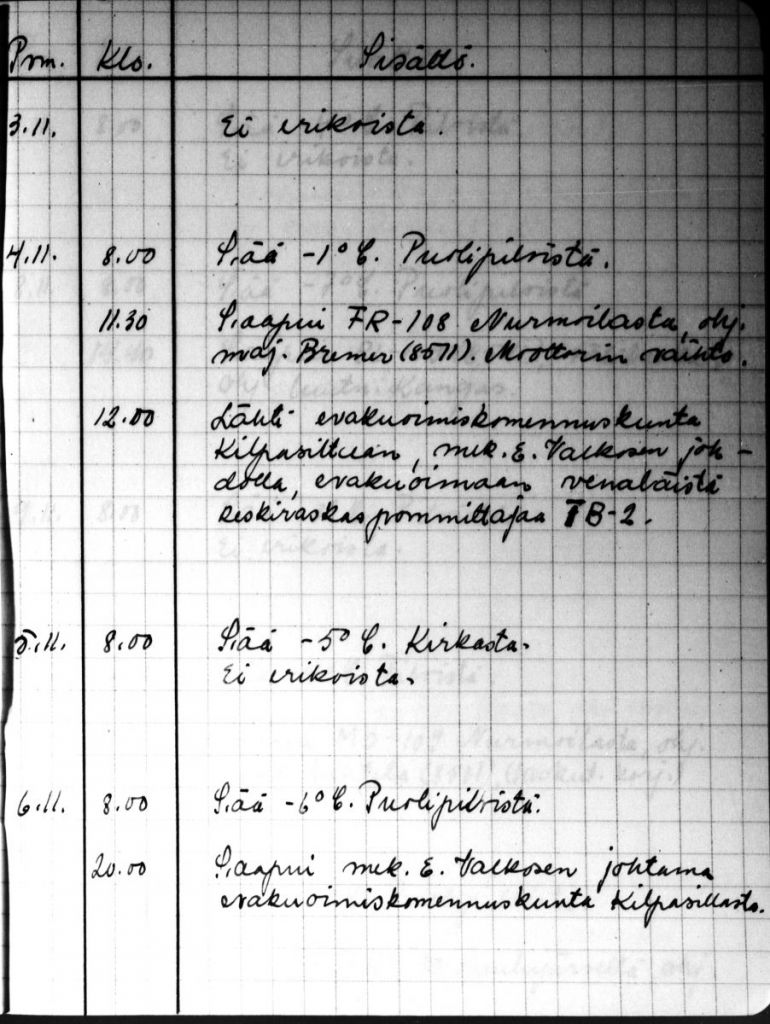 Pvm. Klo. Sisältö.
3.11. Ei erikoista.
4.11. 8.00 Sää -1° C. Puolipilvistä.
11.30 Saapui FR-108 Nurmoilasta, ohj.
maj. Bremer (8511). Moottorin vaihto.
12.00 Lähti evakuoimiskomennuskunta
Kilpasiltaan, mek. E. Valkosen joh-
dolla, evakuoimaan venäläistä
keskiraskas pommittajaa TB-2.
5.11. 8.00 Sää -5° C. Kirkasta.
Ei erikoista.
6.11. 8.00 Sää -6° C. Puolipilvistä.
20.00 Saapui mek. E. Valkosen johtama
evakuoimiskomennuskunta Kilpasillasta.